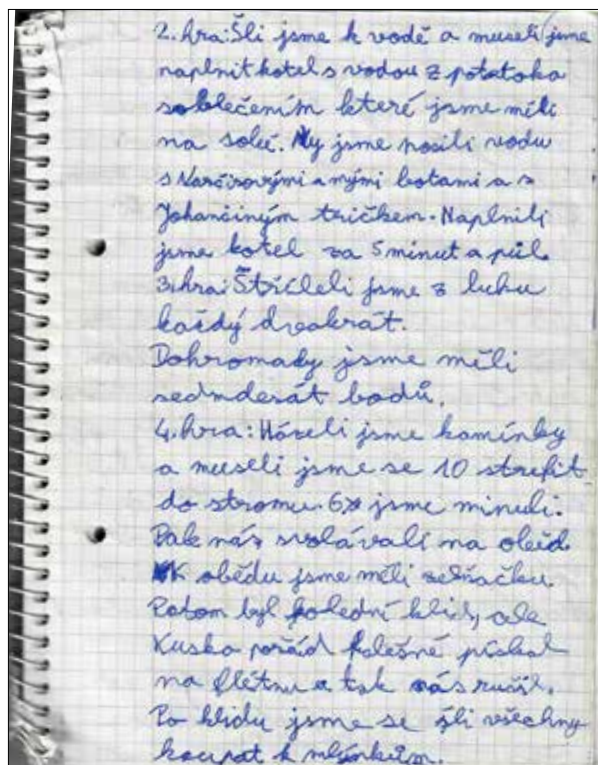 2. hra: Šli jsme k vodě a museli jsme
naplnit kotel s vodou z pototoka
soblečením které jsme měli
na sobě. My jsme nosili vodu
s Narcisovými a mými botami a s
Johančiným tričkem. Naplnili
jsme kotel za 5 minut a půl.
3. hra: Stříleli jsme z luku
každý dvakrát.
Dohromady jsme měli
sedmdesát bodů.
4. hra: Házeli jsme kamínky
a museli jsme se 10 strefit
do stromu. 6x jsme minuli.
Pak nás svolávali na oběd.
K obědu jsme měli zelňačku.
Potom byl polední klid, ale
Kuska pořád falešně pískal
na flétnu a tak nás rušil.
Po klidu jsme se šli všechny
koupat k mlýnkům.